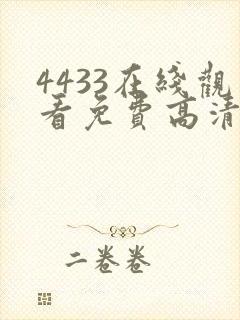 4433在綫觀
看免費高清
二卷卷